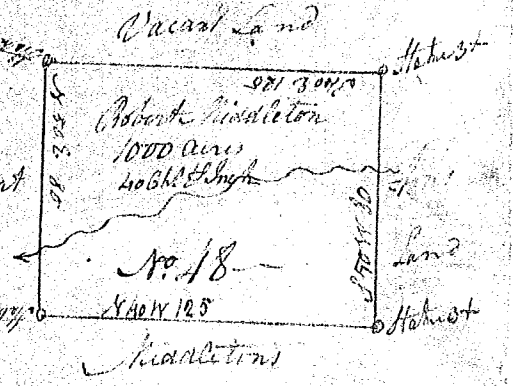 Vacant Land
Stake 3+
S 40 E 125
Robert Middleton
1000 Acres
40 Chs to Inch
N 50 E 80
S 50 W 80
Land
No. 48
N 40 W 125
Stake 3+
Middletons